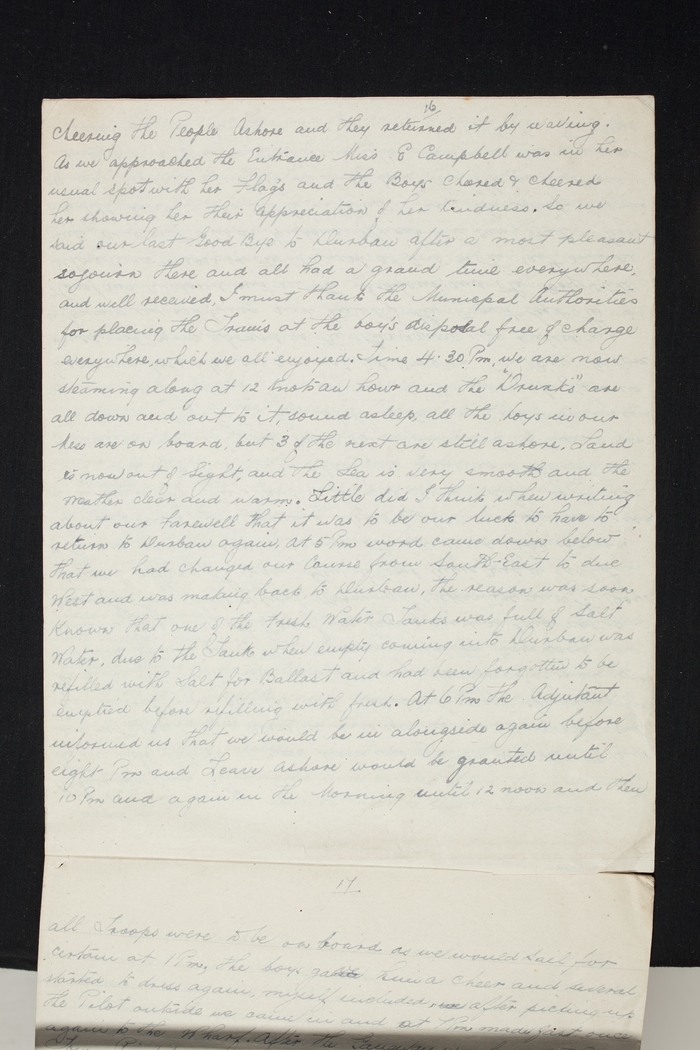 16
cheering the People Ashore and they returned it by waving.
As we approached the Entrance Miss E Campbell was in her
usual spot with her Flags and the Boys Chored & cheered
her showing her their appreciation of her kindness. So we
said our last Good Bye to Durban after a most pleasant
sojourn there and all had a grand time everywhere,
and well received, I must thank the Municpal Authorities
for placing the Trams at the boy's disposal free of charge
everywhere, which we all enjoyed. Time 4.30 Pm, we are now
steaming along at 12 knots an hour and the "Drunks" are
all down and out to it, sound asleep, all the boys in our
Mess are on board, but 3 of the next are still ashore, Land
is now out of Sight, and the Sea is very smooth and the
weather clear and warm. Little did I think when writing
about our Farewell that it was to be our luck to have to
return to Durban again, At 5 Pm word came down below
that we had changed our Course from South-East to due
West and was making back to Durban, the reason was soon
Known that one of the Fresh Water Tanks was full of Salt
Water, due to the Tank when empty coming into Durban was
refilled with Salt for Ballast and had been forgotten to be
emptied before refilling with fresh. At 6 Pm the Adjutant
informed us that we would be in alongside again before
eight Pm and Leave ashore would be granted until
10 Pm and again in the Morning until 12 noon and then
17.
all Troops were to be on board as we would sail for
certain at 1 Pm, the boys gave him a cheer and several
started to dress again, myself included, after picking up
the Pilot outside we came in and at Pm made fast once
again to the Wharf. After the